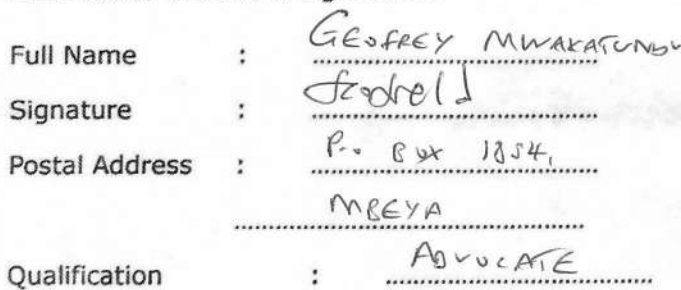 Full Name : GEOFREY MWAKATUNDU
Signature :
Postal Address : P.o Box 1854,
MBEYA
Qualification : ADVOCATE